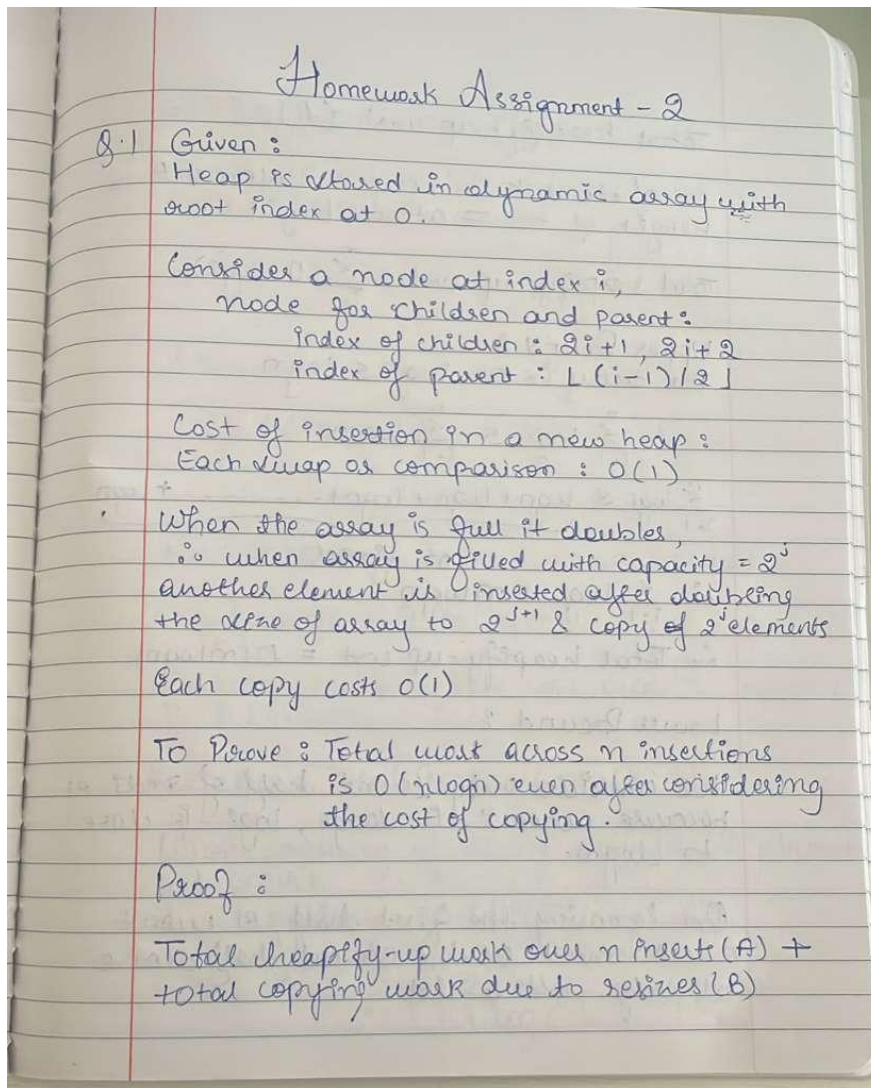 Homework Assignment - 2
Q.1 Given :
Heap is stored in dynamic array with
root index at 0.
Consider a node at index i,
node for children and parent :
index of children : 2i+1, 2i+2
index of parent : ⌊(i-1)/2⌋
Cost of insertion in a new heap :
Each swap or comparison : O(1)
When the array is full it doubles,
∴ when array is filled with capacity = 2^j
another element is inserted after doubling
the size of array to 2^{j+1} & copy of 2^j elements
Each copy costs O(1)
To Prove : Total work across n insertions
is O(nlogn) even after considering
the cost of copying.
Proof :
Total heapify-up work over n inserts (A) +
total copying work due to resizes (B)